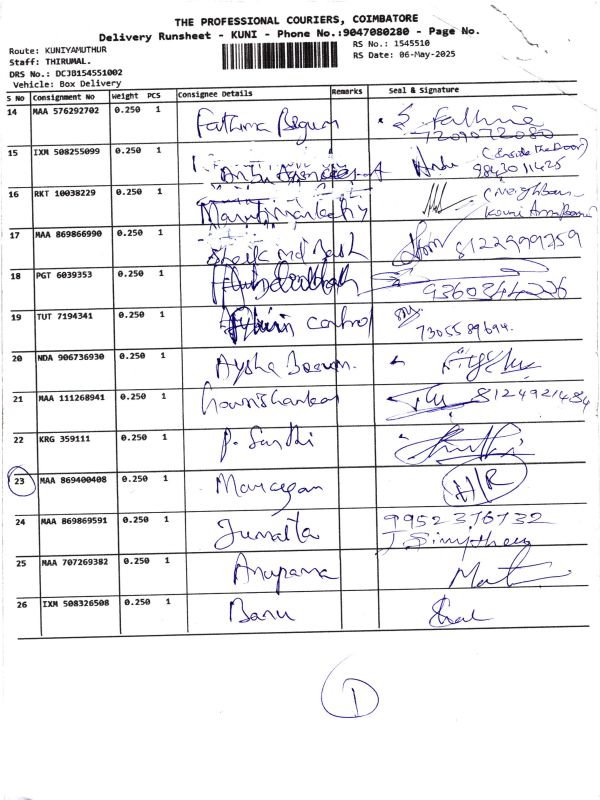 THE PROFESSIONAL COURIERS, COIMBATORE
Delivery Runsheet - KUNI - Phone No.:9047080280 - Page No.
Route: KUNIYAMUTHUR
RS No.: 1545510
Staff: THIRUMAL.
RS Date: 06-May-2025
DRS No.: DCJB154551002
Vehicle: Box Delivery
S No Consignment No Weight PCS Consignee Details Remarks Seal & Signature
14 MAA 576292702 0.250 1 Fathima Begum
7209072080
15 IXM 508255099 0.250 1 (Inside the Door)
9843011425
16 RKT 10038229 0.250 1
17 MAA 869866990 0.250 1 Shaik md 8122999259
18 PGT 6039353 0.250 1
9360844226
19 TUT 7194341 0.250 1 control
7305589694.
20 NDA 906736930 0.250 1 Aysha
21 MAA 111268941 0.250 1 8124921484
22 KRG 359111 0.250 1 P. Santhi
23 MAA 869400408 0.250 1 Murugan H/R
24 MAA 869869591 0.250 1 9952376732
25 MAA 707269382 0.250 1 Anupama
26 IXM 508326508 0.250 1 Banu
1